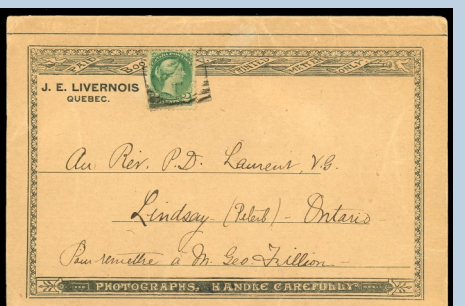 J. E. LIVERNOIS
QUEBEC.
Au Rév. P.D. Laurent, V.G.
Lindsay - (Peterb) - Ontario
Pour remettre à M. Geo. Trillion
PHOTOGRAPHS, HANDLE CAREFULLY